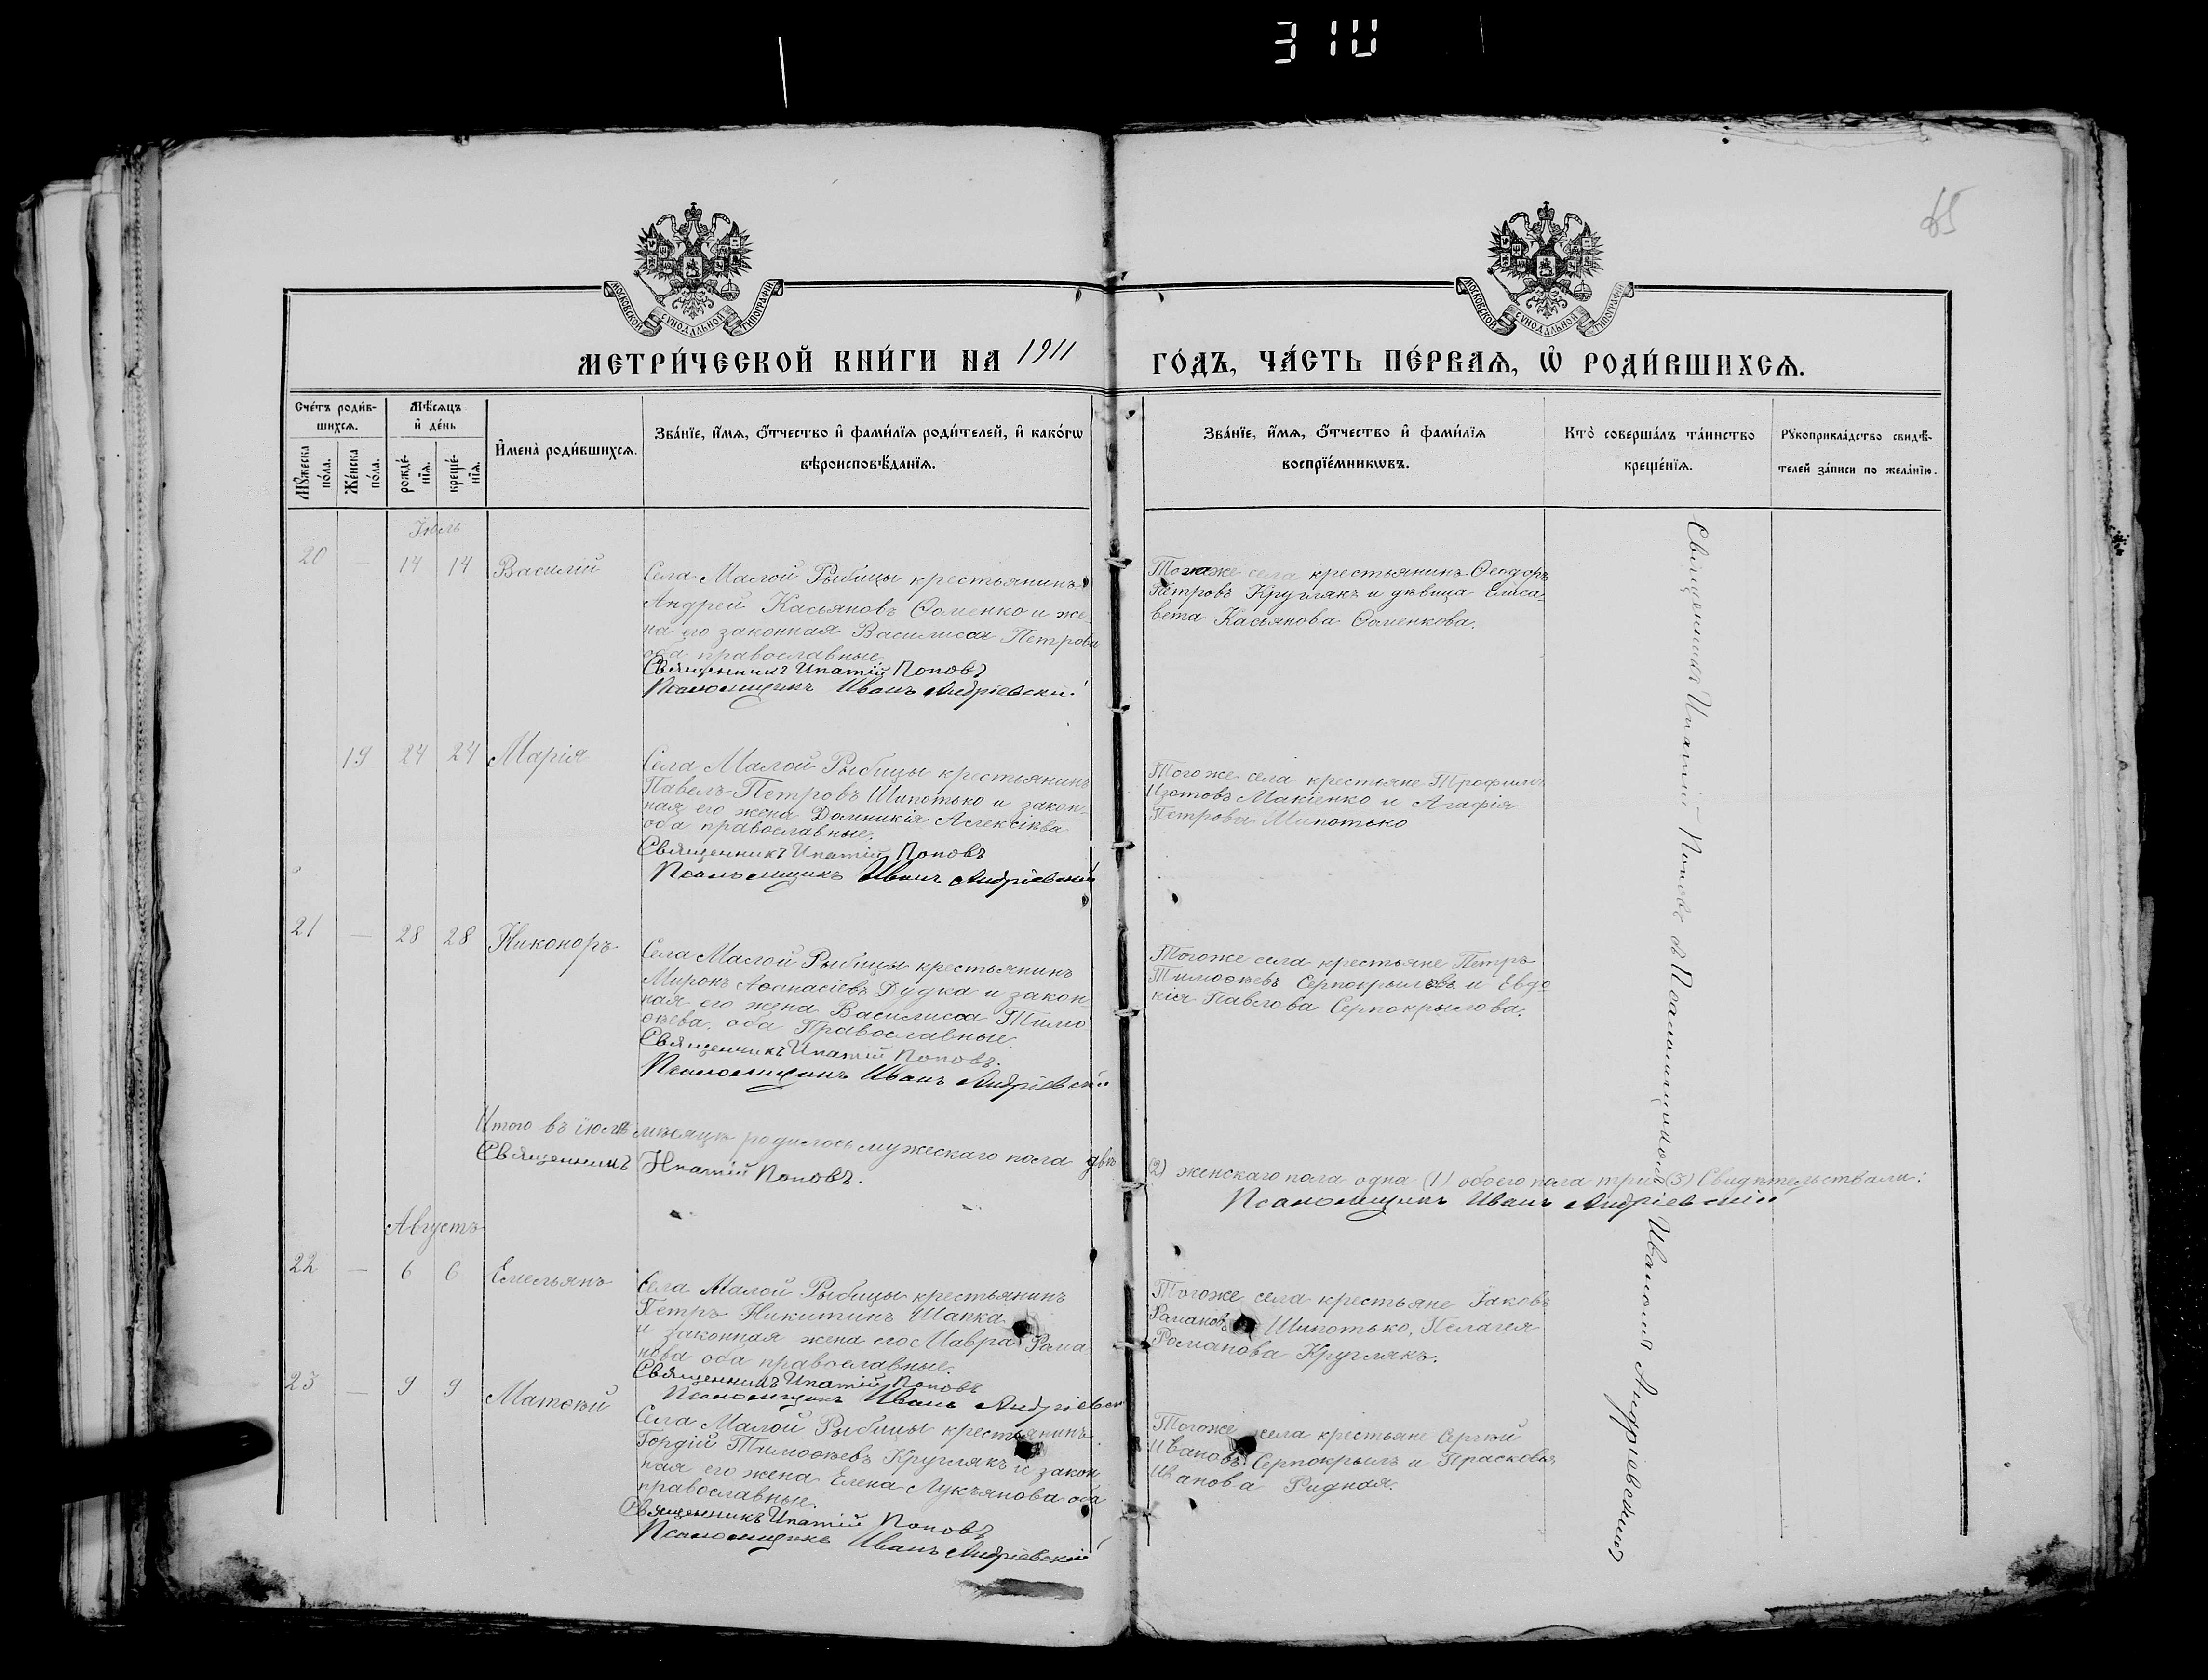 310
65
МОСКОВСКОЙ СѴНОДАЛЬНОЙ ТИПОГРАФІИ
МОСКОВСКОЙ СѴНОДАЛЬНОЙ ТИПОГРАФІИ
МЕТРИ́ЧЕСКОЙ КНИ́ГИ НА 1911 ГО́ДЪ, ЧА́СТЬ ПЕ́РВАѦ, Ѡ҆ РОДИ́ВШИХСѦ.
Сче́тъ роди́в-
шихсѧ.
Мꙋ́жеска по́ла.
Же́нска по́ла.
Мѣ́сѧцъ и҆ де́нь
рожде́нїѧ.
креще́нїѧ.
И҆мена̀ роди́вшихсѧ.
Зва́нїе, и҆́мѧ, ѻ҆́тчество и҆ фами́лїѧ роди́телей, и҆ како́гѡ
вѣроисповѣ́данїѧ.
Зва́нїе, и҆́мѧ, ѻ҆́тчество и҆ фами́лїѧ
воспрїе́мникѡвъ.
Кто̀ соверша́лъ та́инство
креще́нїѧ.
Рꙋкоприкла́дство свидѣ́-
телей за́писи по жела́нїю.
Іюль
20 — 14 14 Василій
Села Малой Рыбицы крестьянинъ
Андрей Касьяновъ Ѳоменко и же
на его законная Василисса Петрова
оба православные.
Священникъ Ипатій Поповъ
Псаломщикъ Иванъ Андріевскій
Тогоже села крестьянинъ Ѳеодоръ
Петровъ Круглякъ и дѣвица Елиса-
вета Касьянова Ѳоменкова.
19 24 24 Марія
Села Малой Рыбицы крестьянинъ
Павелъ Петровъ Шипотько и закон-
ная его жена Домникія Алексіева
оба православные.
Священникъ Ипатій Поповъ
Псаломщикъ Иванъ Андріевскій
Тогоже села крестьяне Трофимъ
Изотовъ Макіенко и Агафія
Петрова Шипотько
21 — 28 28 Никоноръ
Села Малой Рыбицы крестьянинъ
Миронъ Аѳанасіевъ Дудка и закон-
ная его жена Василисса Тимо
ѳѣева, оба Православные
Священникъ Ипатій Поповъ.
Псаломщикъ Иванъ Андріевскій
Тогоже села крестьяне Петръ
Тимоѳѣевъ Серпокрыловъ и Евдо-
кія Павлова Серпокрылова.
Итого въ іюлѣ мѣсяцѣ родилось мужескаго пола два (2) женскаго пола одна (1) обоего пола три (3) Свидѣтельствали:
Священникъ Ипатій Поповъ. Псаломщикъ Иванъ Андріевскій
Августъ
22 — 6 6 Емельянъ
Села Малой Рыбицы крестьянинъ
Петръ Никитинъ Шапка
и законная жена его Мавра Рома
нова оба православные.
Священникъ Ипатій Поповъ
Псаломщикъ Иванъ Андріевскій
Тогоже села крестьяне Іаковъ
Романовъ Шипотько, Пелагея
Романова Круглякъ.
23 — 9 9 Матѳѣй
Села Малой Рыбицы крестьянинъ
Гордій Тимоѳѣевъ Круглякъ и закон
ная его жена Елена Лукъянова оба
православные.
Священникъ Ипатій Поповъ
Псаломщикъ Иванъ Андріевскій
Тогоже села крестьяне Сергѣй
Ивановъ Серпокрылъ и Прасковья
Иванова Ридная.
Священникъ Ипатій Поповъ съ Псаломщикомъ Иваномъ Андріевскимъ